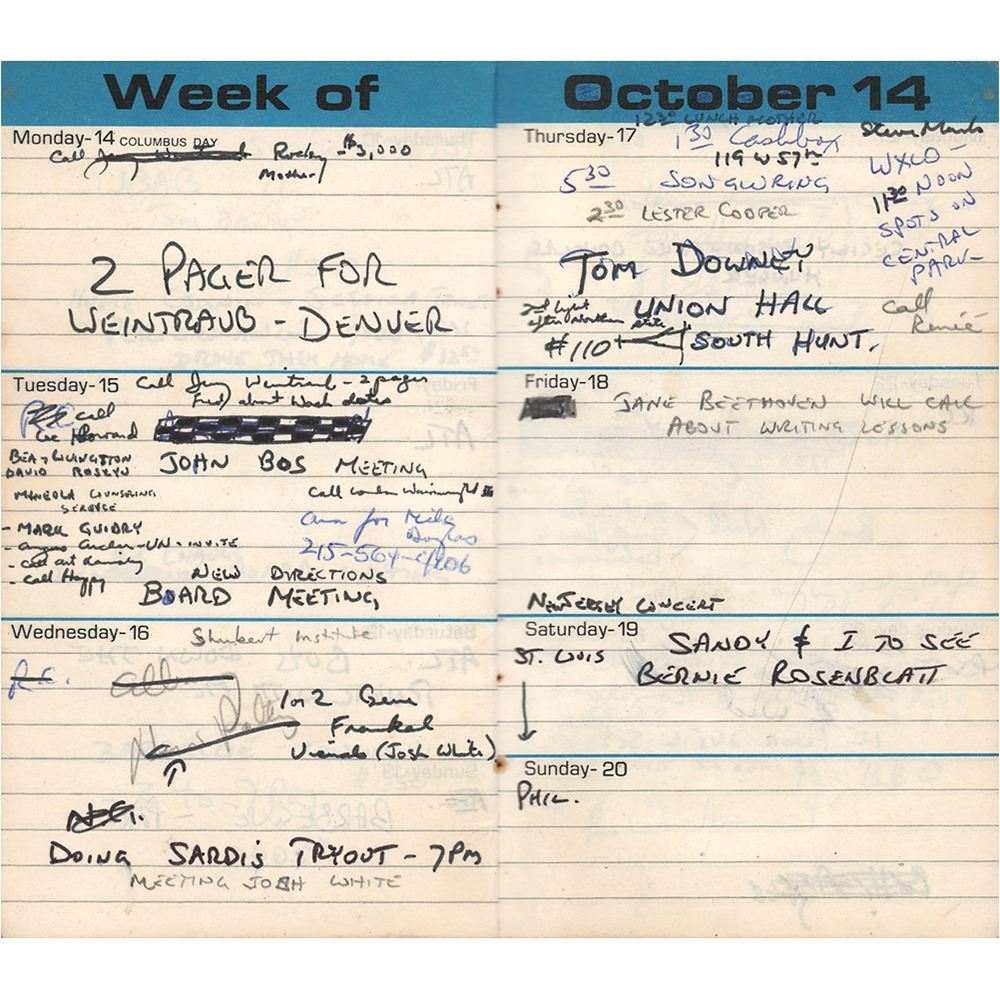 Week of
October 14
Monday-14 COLUMBUS DAY
Call
Rocky - $3,000
Mother
2 PAGER FOR
WEINTRAUB - DENVER
Tuesday-15
Call Jerry Weintraub - 2 pager
Fred about Wash dates
call
Lee Howard
BEA + LIVINGSTON
DAVID
JOHN BOS MEETING
MINEOLA COUNSELING
SERVICE
Call Loudon Wainwright III
- MARK GUIDRY
for Mike
Douglas
- UN - INVITE
215-564-
- call art
- call Happy
NEW DIRECTIONS
BOARD MEETING
Wednesday-16
Shubert Institute
1 or 2 Gene
Frankel
Visuals (Josh White)
DOING SARDI'S TRYOUT - 7PM
MEETING JOSH WHITE
Thursday-17
1230 LUNCH MOTHER
130 Cashbox
119 W 57th
530 SONGWRING
230 LESTER COOPER
WXLO -
1130 NOON
SPOTS ON
CENTRAL
PARK -
Call
Renée
TOM DOWNEY
2nd light
after Northern
State
UNION HALL
#110 +
SOUTH HUNT.
Friday-18
JANE BEETHOVEN WILL CALL
ABOUT WRITING LESSONS
NEW JERSEY CONCERT
Saturday-19
ST. LOUIS
SANDY & I TO SEE
BERNIE ROSENBLATT
Sunday-20
PHIL.